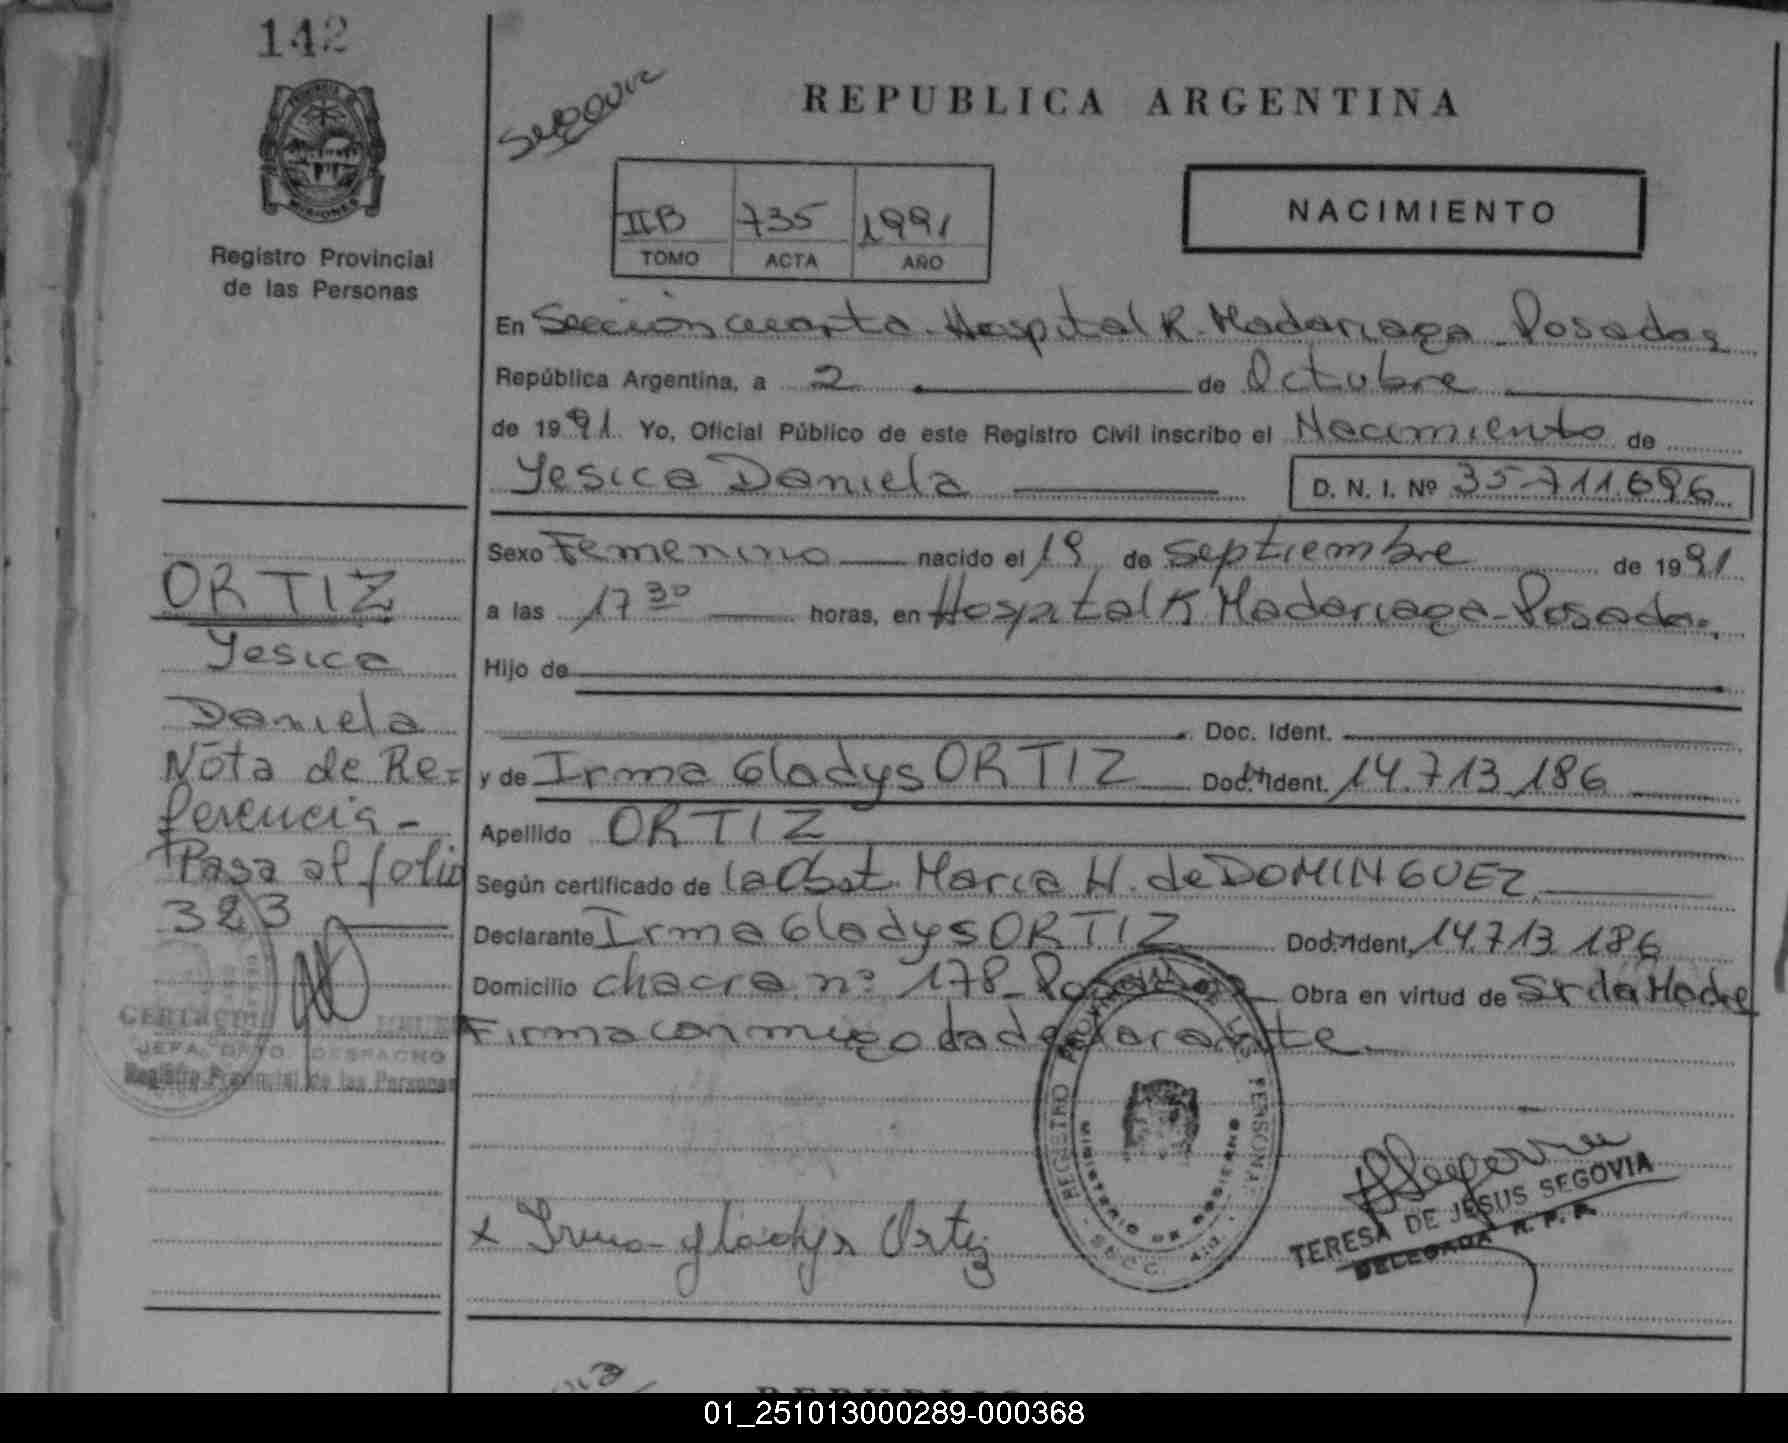 142
PROVINCIA DE
MISIONES
Registro Provincial
de las Personas
ORTIZ
Yesica
Daniela
Nota de Re=
ferencia -
Pasa al folio
323
JEFA DPTO. DESPACHO
Registro Provincial de las Personas
Segovia
REPUBLICA ARGENTINA
IIB 735 1991
TOMO ACTA AÑO
NACIMIENTO
En Sección cuarta - Hospital R. Madariaga - Posadas
República Argentina, a 2 de Octubre
de 1991 Yo, Oficial Público de este Registro Civil inscribo el Nacimiento de
Yesica Daniela D. N. I. Nº 35.711.696
Sexo Femenino nacido el 19 de Septiembre de 1991
a las 17 30 horas, en Hospital R Madariaga - Posadas
Hijo de
Doc. Ident.
y de Irma Gladys ORTIZ Doc. Ident. 14.713.186
Apellido ORTIZ
Según certificado de la Obst. Maria H. de DOMINGUEZ
Declarante Irma Gladys ORTIZ Doc. Ident. 14.713.186
Domicilio chacra nº 178 - Posadas Obra en virtud de Sr la Madre
Firma conmigo la declarante.
REGISTRO PROVINCIAL DE LAS PERSONAS
MINISTERIO DE GOBIERNO
x Irma gladys Ortiz
Segovia
TERESA DE JESUS SEGOVIA
DELEGADA R. P. P.
01_251013000289-000368